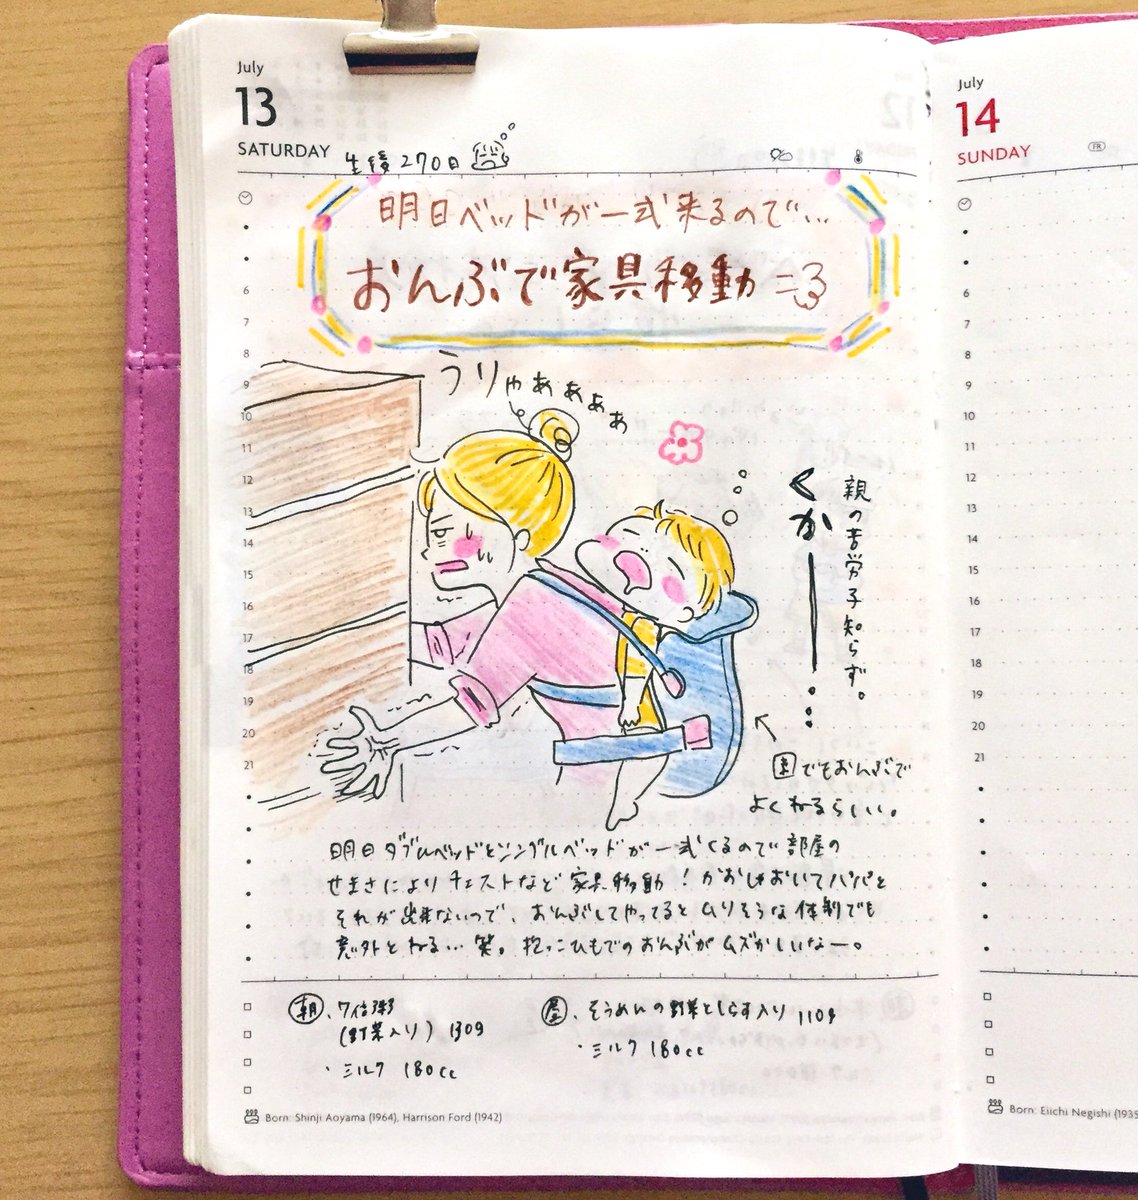 July
13
SATURDAY
生後270日
明日ベッドが一式来るので…
おんぶで家具移動
うりゃあぁぁぁ
くかー
親の苦労子知らず。
園でもおんぶで
よくねるらしい。
明日ダブルベッドとシングルベッドが一式くるので部屋の
せまさによりチェストなど家具移動！かおしおいてパパと
それが出来ないので、おんぶしてやってるとムリそうな体制でも
意外とねる…笑。抱っこひもでのおんぶがムズかしいなー。
朝、7倍粥
(野菜入り) 130g
・ミルク 180cc
昼、そうめんの野菜としらす入り 110g
・ミルク 180cc
Born: Shinji Aoyama (1964), Harrison Ford (1942)
July
14
SUNDAY
FR
6
7
8
9
10
11
12
13
14
15
16
17
18
19
20
21
6
7
8
9
10
11
12
13
14
15
16
17
18
19
20
21
Born: Eiichi Negishi (1935